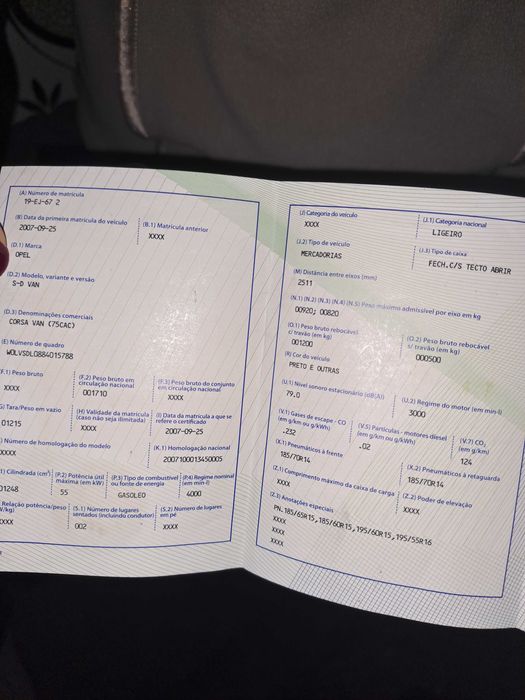 (A) Número de matrícula
19-EJ-67 2
(B) Data da primeira matrícula do veículo
2007-09-25
(B.1) Matrícula anterior
XXXX
(D.1) Marca
OPEL
(D.2) Modelo, variante e versão
S-D VAN
(D.3) Denominações comerciais
CORSA VAN (75CAC)
(E) Número de quadro
W0LVSDL0884015788
(F.1) Peso bruto
XXXX
(F.2) Peso bruto em
circulação nacional
001710
(F.3) Peso bruto do conjunto
em circulação nacional
XXXX
(G) Tara/Peso em vazio
01215
(H) Validade da matrícula
(caso não seja ilimitada)
XXXX
(I) Data da matrícula a que se
refere o certificado
2007-09-25
) Número de homologação do modelo
XXXX
(K.1) Homologação nacional
2007100013450005
.1) Cilindrada (cm³)
01248
(P.2) Potência útil
máxima (em kW)
55
(P.3) Tipo de combustível
ou fonte de energia
GASOLEO
(P.4) Regime nominal
(em min-1)
4000
Relação potência/peso
W/kg)
XXXX
(S.1) Número de lugares
sentados (incluindo condutor)
002
(S.2) Número de lugares
em pé
XXXX
(J) Categoria do veículo
XXXX
(J.1) Categoria nacional
LIGEIRO
(J.2) Tipo de veículo
MERCADORIAS
(J.3) Tipo de caixa
FECH.C/S TECTO ABRIR
(M) Distância entre eixos (mm)
2511
(N.1) (N.2) (N.3) (N.4) (N.5) Peso máximo admissível por eixo em kg
00920; 00820
(O.1) Peso bruto rebocável
c/ travão (em kg)
001200
(O.2) Peso bruto rebocável
s/ travão (em kg)
000500
(R) Cor do veículo
PRETO E OUTRAS
(U.1) Nível sonoro estacionário (dB(A))
79.0
(U.2) Regime do motor (em min-1)
3000
(V.1) Gases de escape - CO
(em g/km ou g/kWh)
.232
(V.5) Partículas - motores diesel
(em g/km ou g/kWh)
.02
(V.7) CO₂
(em g/km)
124
(X.1) Pneumáticos à frente
185/70R14
(X.2) Pneumáticos à retaguarda
185/70R14
(Z.1) Comprimento máximo da caixa de carga
XXXX
(Z.2) Poder de elevação
XXXX
(Z.3) Anotações especiais
PN.185/65R15,185/60R15,195/60R15,195/55R16
XXXX
XXXX
XXXX